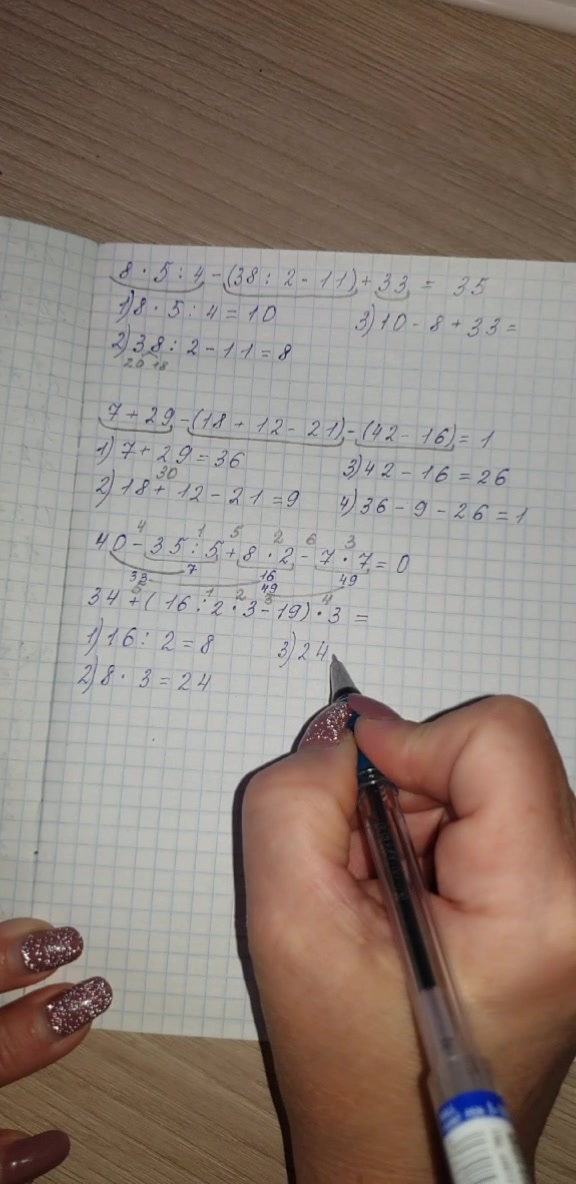 8 · 5 : 4 - (38 : 2 - 11) + 33 = 35
1) 8 · 5 : 4 = 10 3) 10 - 8 + 33 =
2) 38 : 2 - 11 = 8
20 18
7 + 29 - (18 + 12 - 21) - (42 - 16) = 1
1) 7 + 29 = 36 3) 42 - 16 = 26
30
2) 18 + 12 - 21 = 9 4) 36 - 9 - 26 = 1
4 1 5 2 6 3
40 - 35 : 5 + 8 · 2 - 7 · 7 = 0
7 16 49
33 49
5 1 2 3 4
34 + (16 : 2 · 3 - 19) · 3 =
1) 16 : 2 = 8 3) 24
2) 8 · 3 = 24